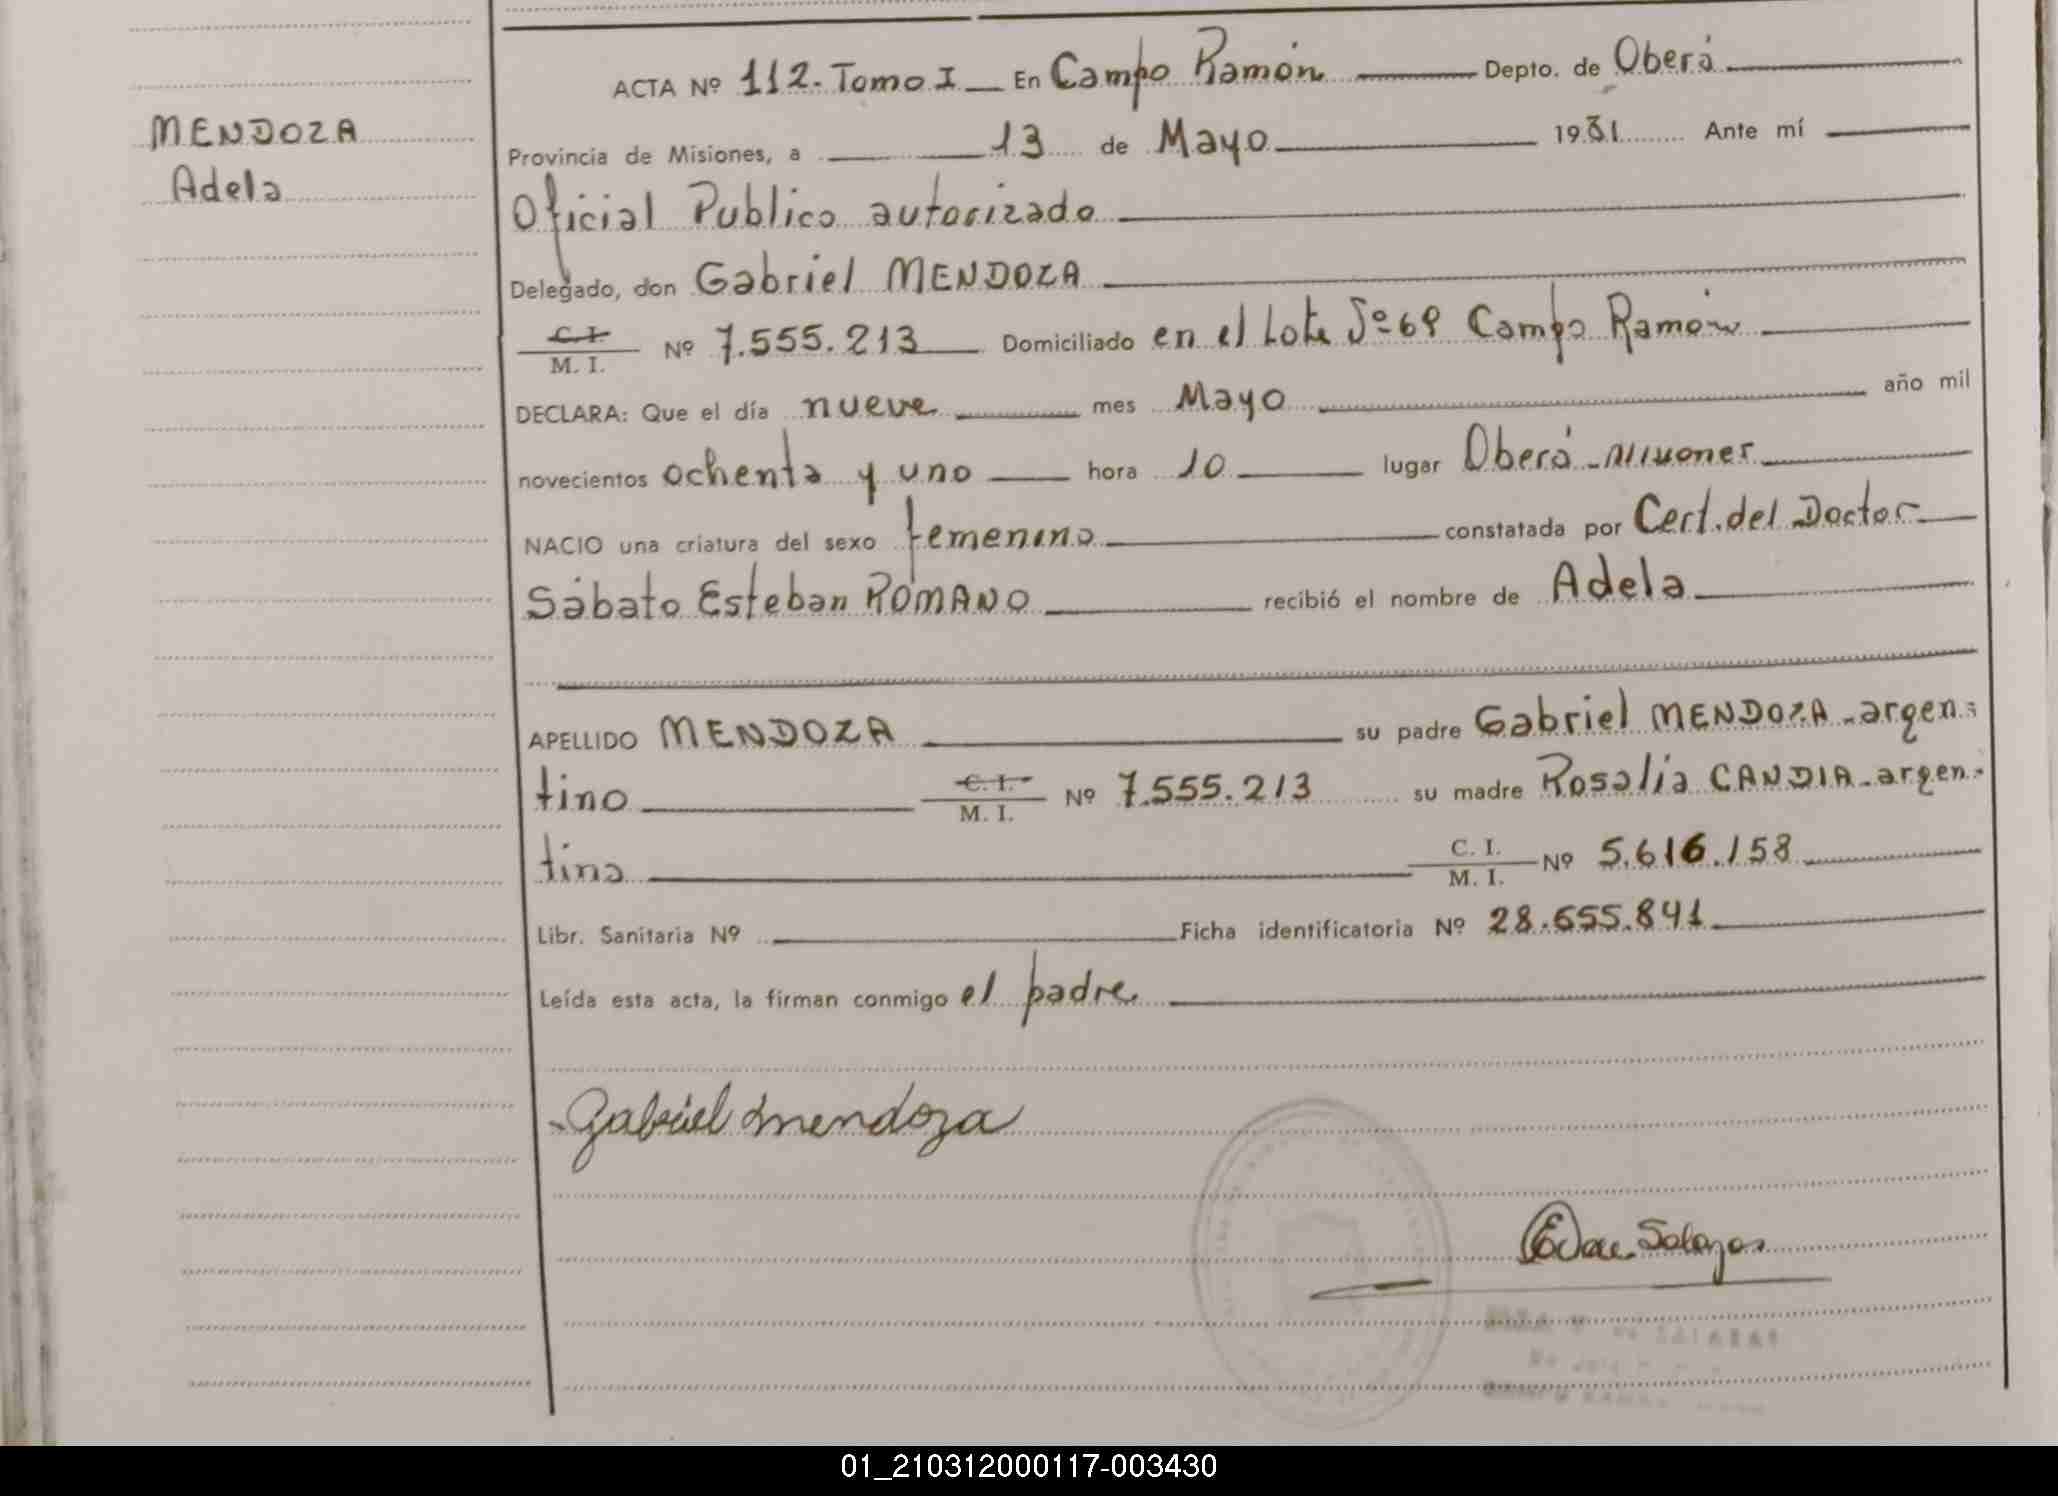 ACTA Nº 112. Tomo I En Campo Ramón Depto. de Oberá
MENDOZA
Adela
Provincia de Misiones, a 13 de Mayo 1981 Ante mí
Oficial Publico autorizado
Delegado, don Gabriel MENDOZA
C. I.
M. I. Nº 7.555.213 Domiciliado en el Lote Nº 69 Campo Ramón
DECLARA: Que el día nueve mes Mayo año mil
novecientos ochenta y uno hora 10 lugar Oberá - Misiones
NACIO una criatura del sexo femenino constatada por Cert. del Doctor
Sábato Esteban ROMANO recibió el nombre de Adela
APELLIDO MENDOZA su padre Gabriel MENDOZA - argen-
tino C. I. M. I. Nº 7.555.213 su madre Rosalia CANDIA - argen-
tina C. I. M. I. Nº 5.616.158
Libr. Sanitaria Nº Ficha identificatoria Nº 28.655.841
Leída esta acta, la firman conmigo el padre
Gabriel Mendoza
Salazar
01_210312000117-003430